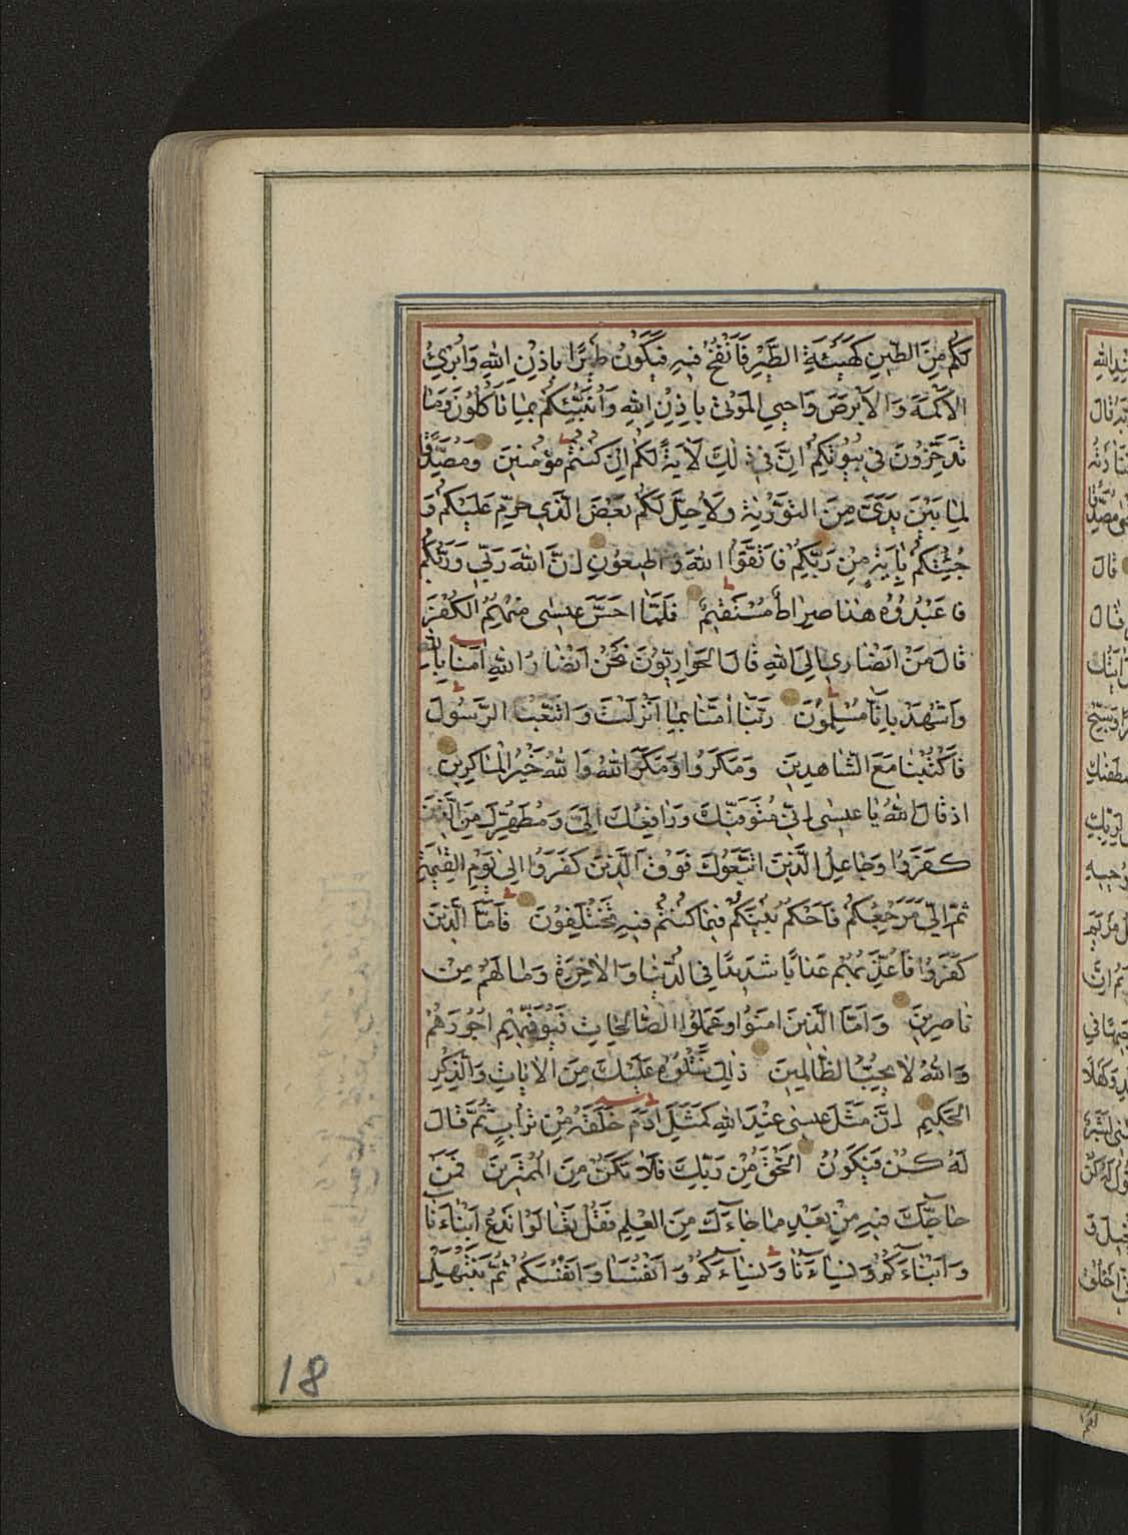 لَكُمْ مِنَ الطّٖينِ كَهَيْئَةِ الطَّيْرِ فَاَنْفُخُ فٖيهِ فَيَكُونُ طَيْرًا بِاِذْنِ اللهِ وَاُبْرِئُ
الْاَكْمَهَ وَالْاَبْرَصَ وَاُحْيِي الْمَوْتٰى بِاِذْنِ اللهِ وَاُنَبِّئُكُمْ بِمَا تَأْكُلُونَ وَمَا
تَدَّخِرُونَ فٖي بُيُوتِكُمْ اِنَّ فٖي ذٰلِكَ لَاٰيَةً لَكُمْ اِنْ كُنْتُمْ مُؤْمِنٖينَ وَمُصَدِّقًا
لِمَا بَيْنَ يَدَيَّ مِنَ التَّوْرٰيةِ وَلِاُحِلَّ لَكُمْ بَعْضَ الَّذٖي حُرِّمَ عَلَيْكُمْ وَ
جِئْتُكُمْ بِاٰيَةٍ مِنْ رَبِّكُمْ فَاتَّقُوا اللهَ وَاَطٖيعُونِ اِنَّ اللهَ رَبّٖي وَرَبُّكُمْ
فَاعْبُدُوهُ هٰذَا صِرَاطٌ مُسْتَقٖيمٌ فَلَمَّا اَحَسَّ عٖيسٰى مِنْهُمُ الْكُفْرَ
قَالَ مَنْ اَنْصَارٖي اِلَى اللهِ قَالَ الْحَوَارِيُّونَ نَحْنُ اَنْصَارُ اللهِ اٰمَنَّا بِاللهِ
وَاشْهَدْ بِاَنَّا مُسْلِمُونَ رَبَّنَا اٰمَنَّا بِمَا اَنْزَلْتَ وَاتَّبَعْنَا الرَّسُولَ
فَاكْتُبْنَا مَعَ الشَّاهِدٖينَ وَمَكَرُوا وَمَكَرَ اللهُ وَاللهُ خَيْرُ الْمَاكِرٖينَ
اِذْ قَالَ اللهُ يَا عٖيسٰى اِنّٖي مُتَوَفّٖيكَ وَرَافِعُكَ اِلَيَّ وَمُطَهِّرُكَ مِنَ الَّذٖينَ
كَفَرُوا وَجَاعِلُ الَّذٖينَ اتَّبَعُوكَ فَوْقَ الَّذٖينَ كَفَرُوا اِلٰى يَوْمِ الْقِيٰمَةِ
ثُمَّ اِلَيَّ مَرْجِعُكُمْ فَاَحْكُمُ بَيْنَكُمْ فٖيمَا كُنْتُمْ فٖيهِ تَخْتَلِفُونَ فَاَمَّا الَّذٖينَ
كَفَرُوا فَاُعَذِّبُهُمْ عَذَابًا شَدٖيدًا فِي الدُّنْيَا وَالْاٰخِرَةِ وَمَا لَهُمْ مِنْ
نَاصِرٖينَ وَاَمَّا الَّذٖينَ اٰمَنُوا وَعَمِلُوا الصَّالِحَاتِ فَيُوَفّٖيهِمْ اُجُورَهُمْ
وَاللهُ لَا يُحِبُّ الظَّالِمٖينَ ذٰلِكَ نَتْلُوهُ عَلَيْكَ مِنَ الْاٰيَاتِ وَالذِّكْرِ
الْحَكٖيمِ اِنَّ مَثَلَ عٖيسٰى عِنْدَ اللهِ كَمَثَلِ اٰدَمَ خَلَقَهُ مِنْ تُرَابٍ ثُمَّ قَالَ
لَهُ كُنْ فَيَكُونُ اَلْحَقُّ مِنْ رَبِّكَ فَلَا تَكُنْ مِنَ الْمُمْتَرٖينَ فَمَنْ
حَاجَّكَ فٖيهِ مِنْ بَعْدِ مَا جَاءَكَ مِنَ الْعِلْمِ فَقُلْ تَعَالَوْا نَدْعُ اَبْنَاءَنَا
وَاَبْنَاءَكُمْ وَنِسَاءَنَا وَنِسَاءَكُمْ وَاَنْفُسَنَا وَاَنْفُسَكُمْ ثُمَّ نَبْتَهِلْ
18